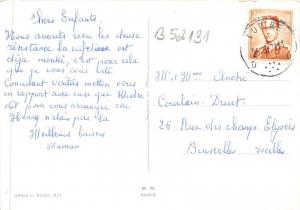 Chers Enfants.
Nous avons reçu les deux
résistance la cafetière est
déjà monté, c'est pour cela
que je vous
Comment
en rapport avec ceux que
dit pour vous arranger car
Henry n'étais pas là
Meilleurs baisers
Maman
B 562131
M et Mme André
Courtain-Druet
26 Rue des champs Elysées
Bruxelles Ixelles
M. P.
PARIS